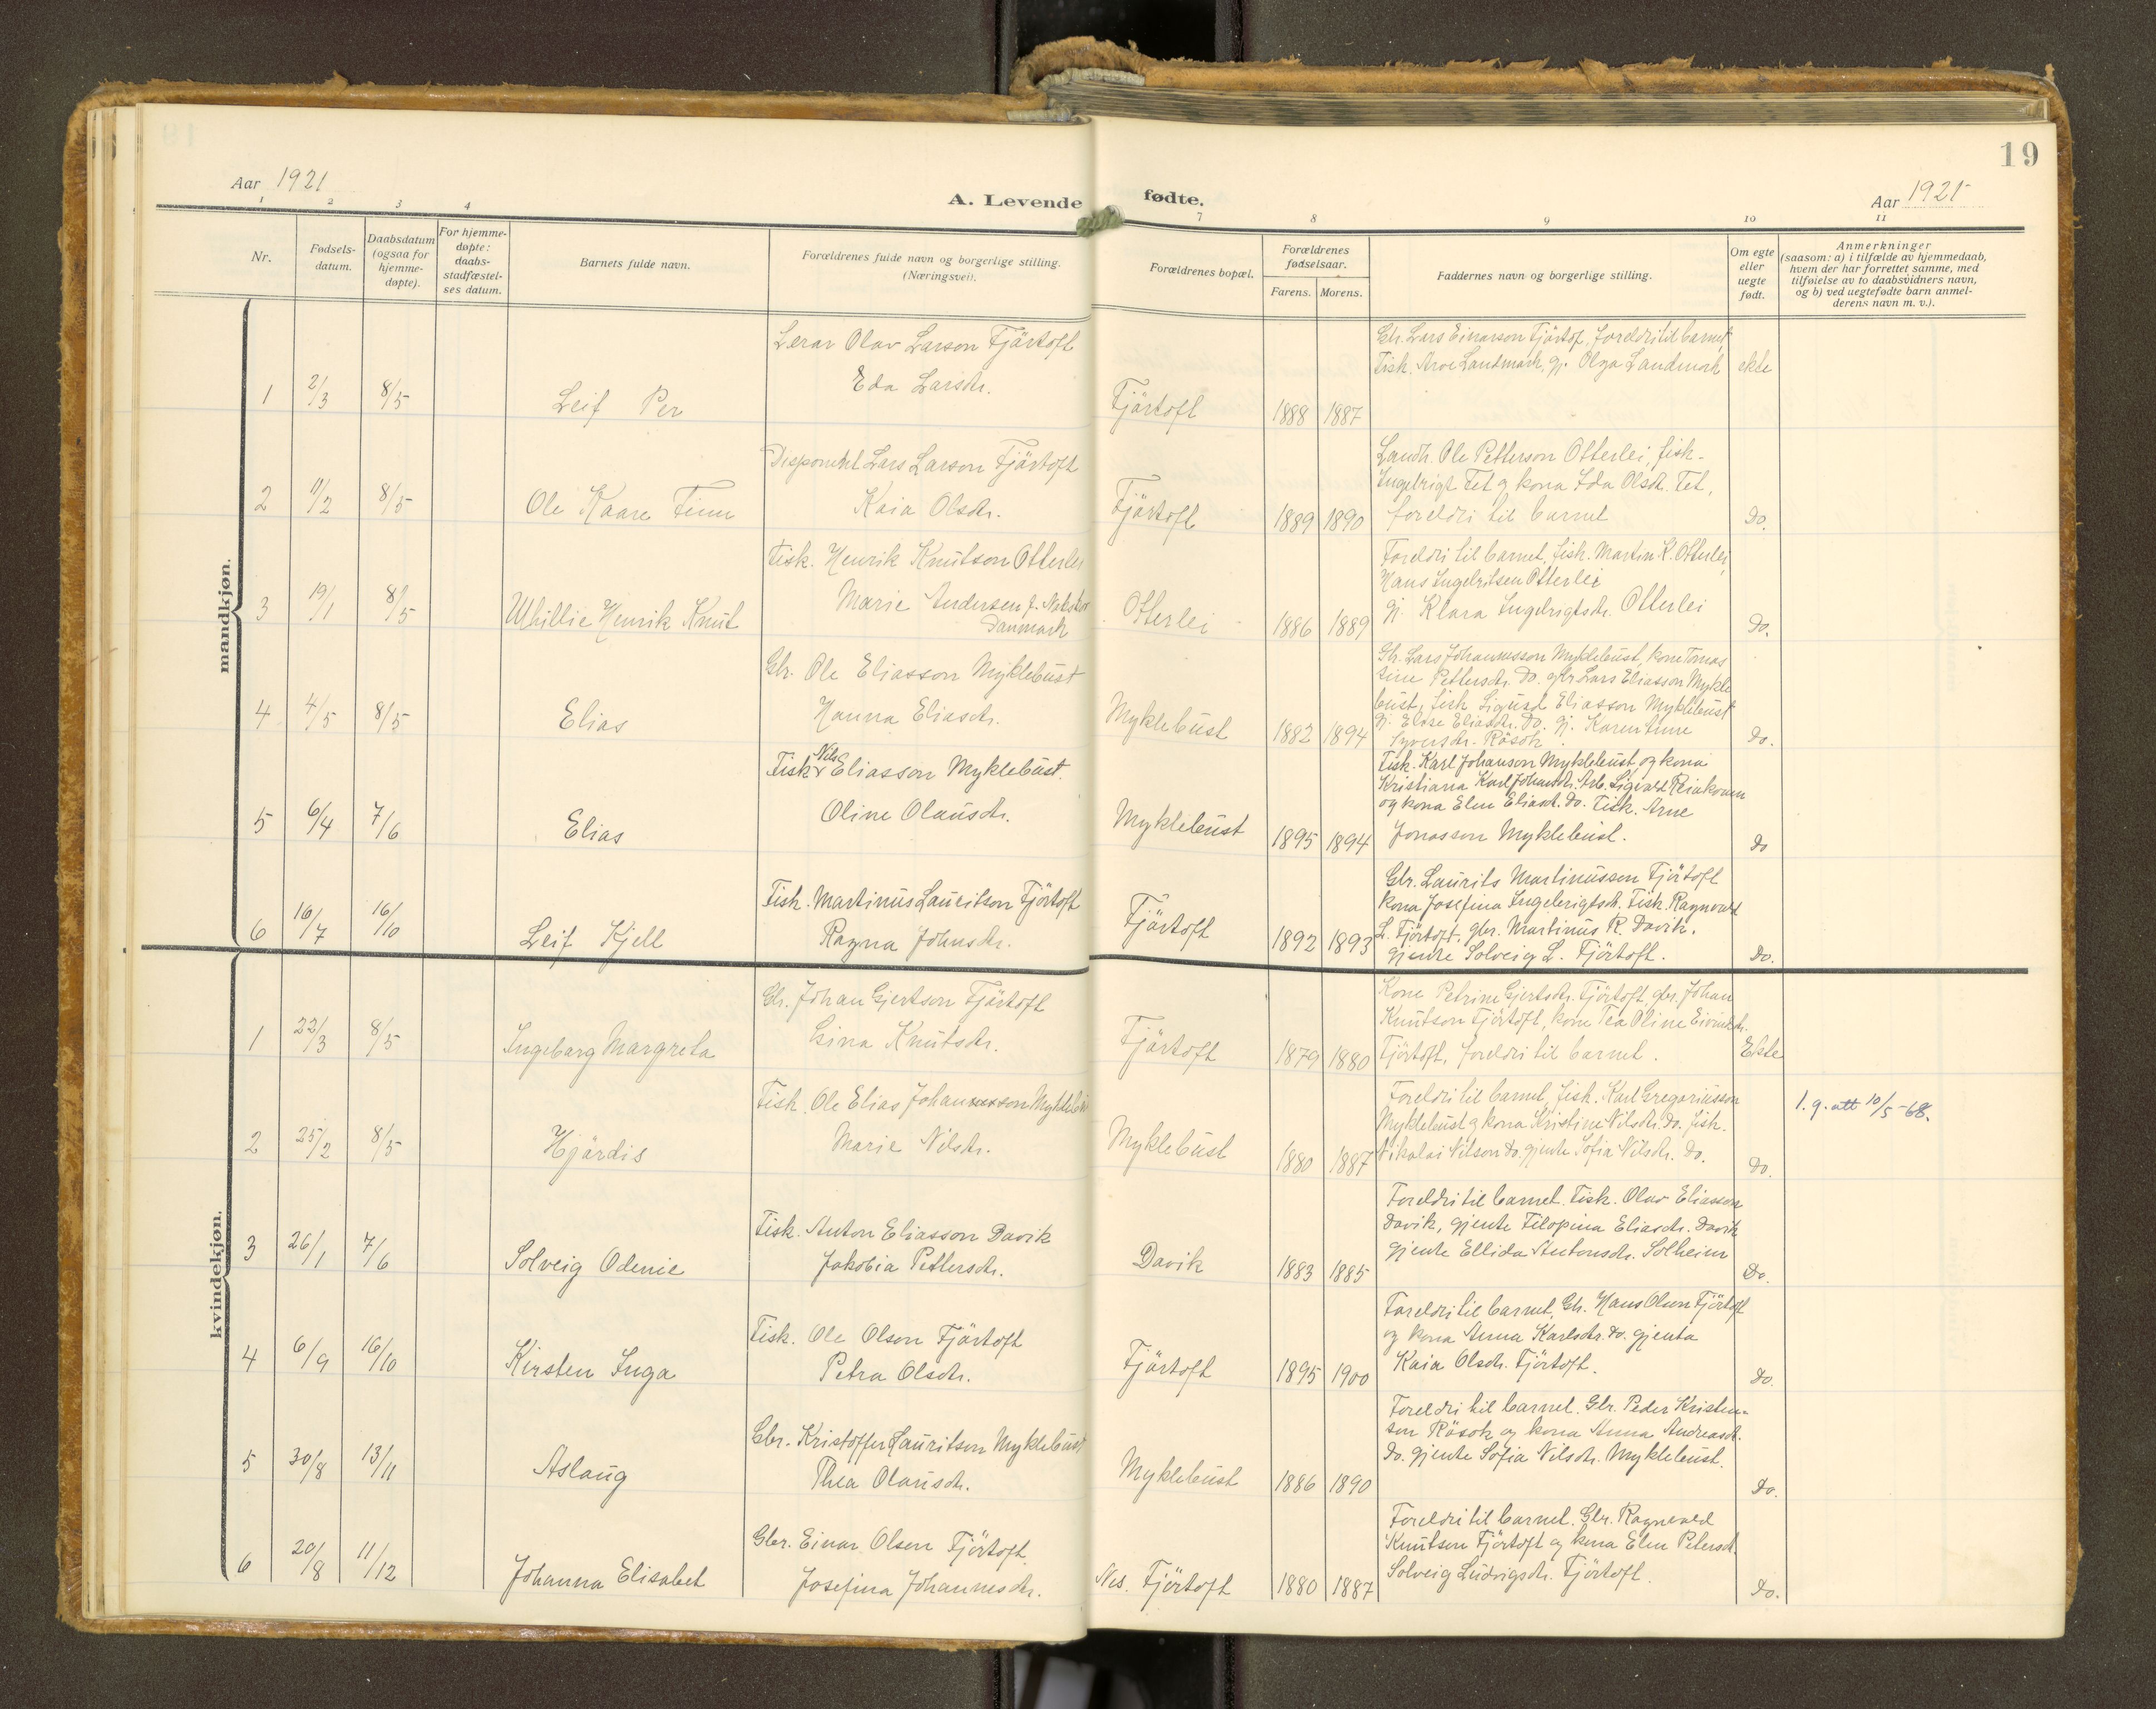 19
Aar 1921
A. Levende fødte.
Aar 1921
1 2 3 4 7 8 9 10 11
Nr.
Fødsels-
datum.
Daabsdatum
(ogsaa for
hjemme-
døpte).
For hjemme-
døpte:
daabs-
stadfæstel-
ses datum.
Barnets fulde navn.
Forældrenes fulde navn og borgerlige stilling.
(Næringsvei).
Forældrenes bopæl.
Forældrenes
fødselsaar.
Farens. Morens.
Faddernes navn og borgerlige stilling.
Om egte
eller
uegte
født.
Anmerkninger
(saasom: a) i tilfælde av hjemmedaab,
hvem der har forrettet samme, med
tilføielse av to daabsvidners navn,
og b) ved uegtefødte barn anmel-
derens navn m. v.).
mandkjøn.
1 2/3 8/5 Leif Per
Lerar Olav Larson Fjärtoft
Eda Larsdr.
Fjärtoft 1888 1887
Gbr. Lars Einarson Fjärtof, foreldri til barnet
Fisk. Arve Landmark, gj. Olga Landmark ekte
2 11/2 8/5 Ole Kaare Finn
Disponent Lars Larson Fjärtoft
Kaia Olsdr.
Fjärtoft 1889 1890
Landh. Ole Petterson Otterlei, fisk-
Ingebrigt Tet og kona Ida Olsdr. Tet,
foreldri til barnet Do.
3 19/1 8/5 Whillie Henrik Knut
Fisk. Henrik Knutson Otterlei
Marie Andersen f. Nakskov
Danmark
Otterlei 1886 1889
Foreldri til barnet, fisk. Martin K. Otterlei,
Hans Ingebritsen Otterlei
gj. Klara Ingebrigtsdr. Otterlei Do.
4 4/5 8/5 Elias
Gbr. Ole Eliasson Myklebust
Hanna Eliasdr.
Myklebust 1882 1894
Gbr. Lars Johannesson Myklebust, kone Tomas
sine Pettersdr. Do. gbr Lars Eliasson Mykle
bust, fisk Sigurd Eliasson Myklebust
gj. Elise Eliasdr. Do. gj. Karentine
Syversdr. Rösok. Do.
5 6/4 7/6 Elias
Fisk. Nils Eliasson Myklebust.
Oline Olausdr.
Myklebust 1895 1894
Fisk. Karl Johanson Myklebust og kona
Kristiana Karl Johansdr. Arb. Sigvald
og kona Elen Eliasd. Do. Fisk. Arne
Jonasson Myklebust. Do
6 16/7 16/10 Leif Kjell
Fisk. Martinus Lauritson Fjörtoft
Ragna Johnsdr.
Fjärtoft 1892 1893
Gbr. Laurits Martinussen Fjörtoft
kona Josefina Ingebrigtsd. Fisk. Ragnvald
L. Fjörtoft, gbr. Martinus R. Davik,
gjente Solveig L. Fjörtoft. Do.
kvindekjøn.
1 22/3 8/5 Ingebarg Margreta
Gbr. Johan Gjertson Fjärtoft
Lina Knutsdr.
Fjärtoft 1879 1880
Kone Petrine Gjertsdr. Fjörtoft, gbr. Johan
Knutson Fjörtoft, kone Tea Oline Eivindsdr.
Fjörtoft, foreldri til barnet. Ekte
2 25/2 8/5 Hjärdis
Fisk. Ole Elias Johannesson Myklebust
Marie Nilsdr.
Myklebust 1880 1887
Foreldri til barnet, fisk. Karl Gregoriusson
Myklebust og kona Kristine Nilsdr. Do. fisk.
Nikolai Nilson Do. gjente Sofia Nilsdr. Do. Do.
1. g. att 10/5-68.
3 26/1 7/6 Solveig Odenie
Fisk. Anton Eliasson Davik
Jakobia Pettersdr.
Davik 1883 1885
Foreldri til barnet. Fisk. Olav Eliasson
Davik, gjente Filopina Eliasdr. Davik
gjente Ellida Antonsdr. Solheim Do.
4 6/9 16/10 Kirsten Inga
Fisk. Ole Olson Fjärtoft
Petra Olsdr.
Fjärtoft 1895 1900
Foreldri til barnet, Gbr. Hans Olson Fjörtoft
og kona Anna Karlsdr. Do. gjenta
Kaia Olsdr. Fjörtoft. Do.
5 30/8 13/11 Aslaug
Gbr. Kristoffer Lauritson Myklebust
Thea Olausdr.
Myklebust 1886 1890
Foreldri til barnet. Gbr. Peder Kristen-
sen Rösok og kona Anna Andreasd.
Do. gjente Sofia Nilsdr. Myklebust. Do.
6 20/8 11/12 Johanna Elisabet
Gbr. Einar Olsen Fjörtoft
Josefina Johannesdr.
Nes. Fjörtoft 1880 1887
Foreldri til barnet. Gbr. Ragnvald
Knutson Fjörtoft og kona Elen Petersd.
Solveig Ludvigsdr. Fjörtoft. Do.